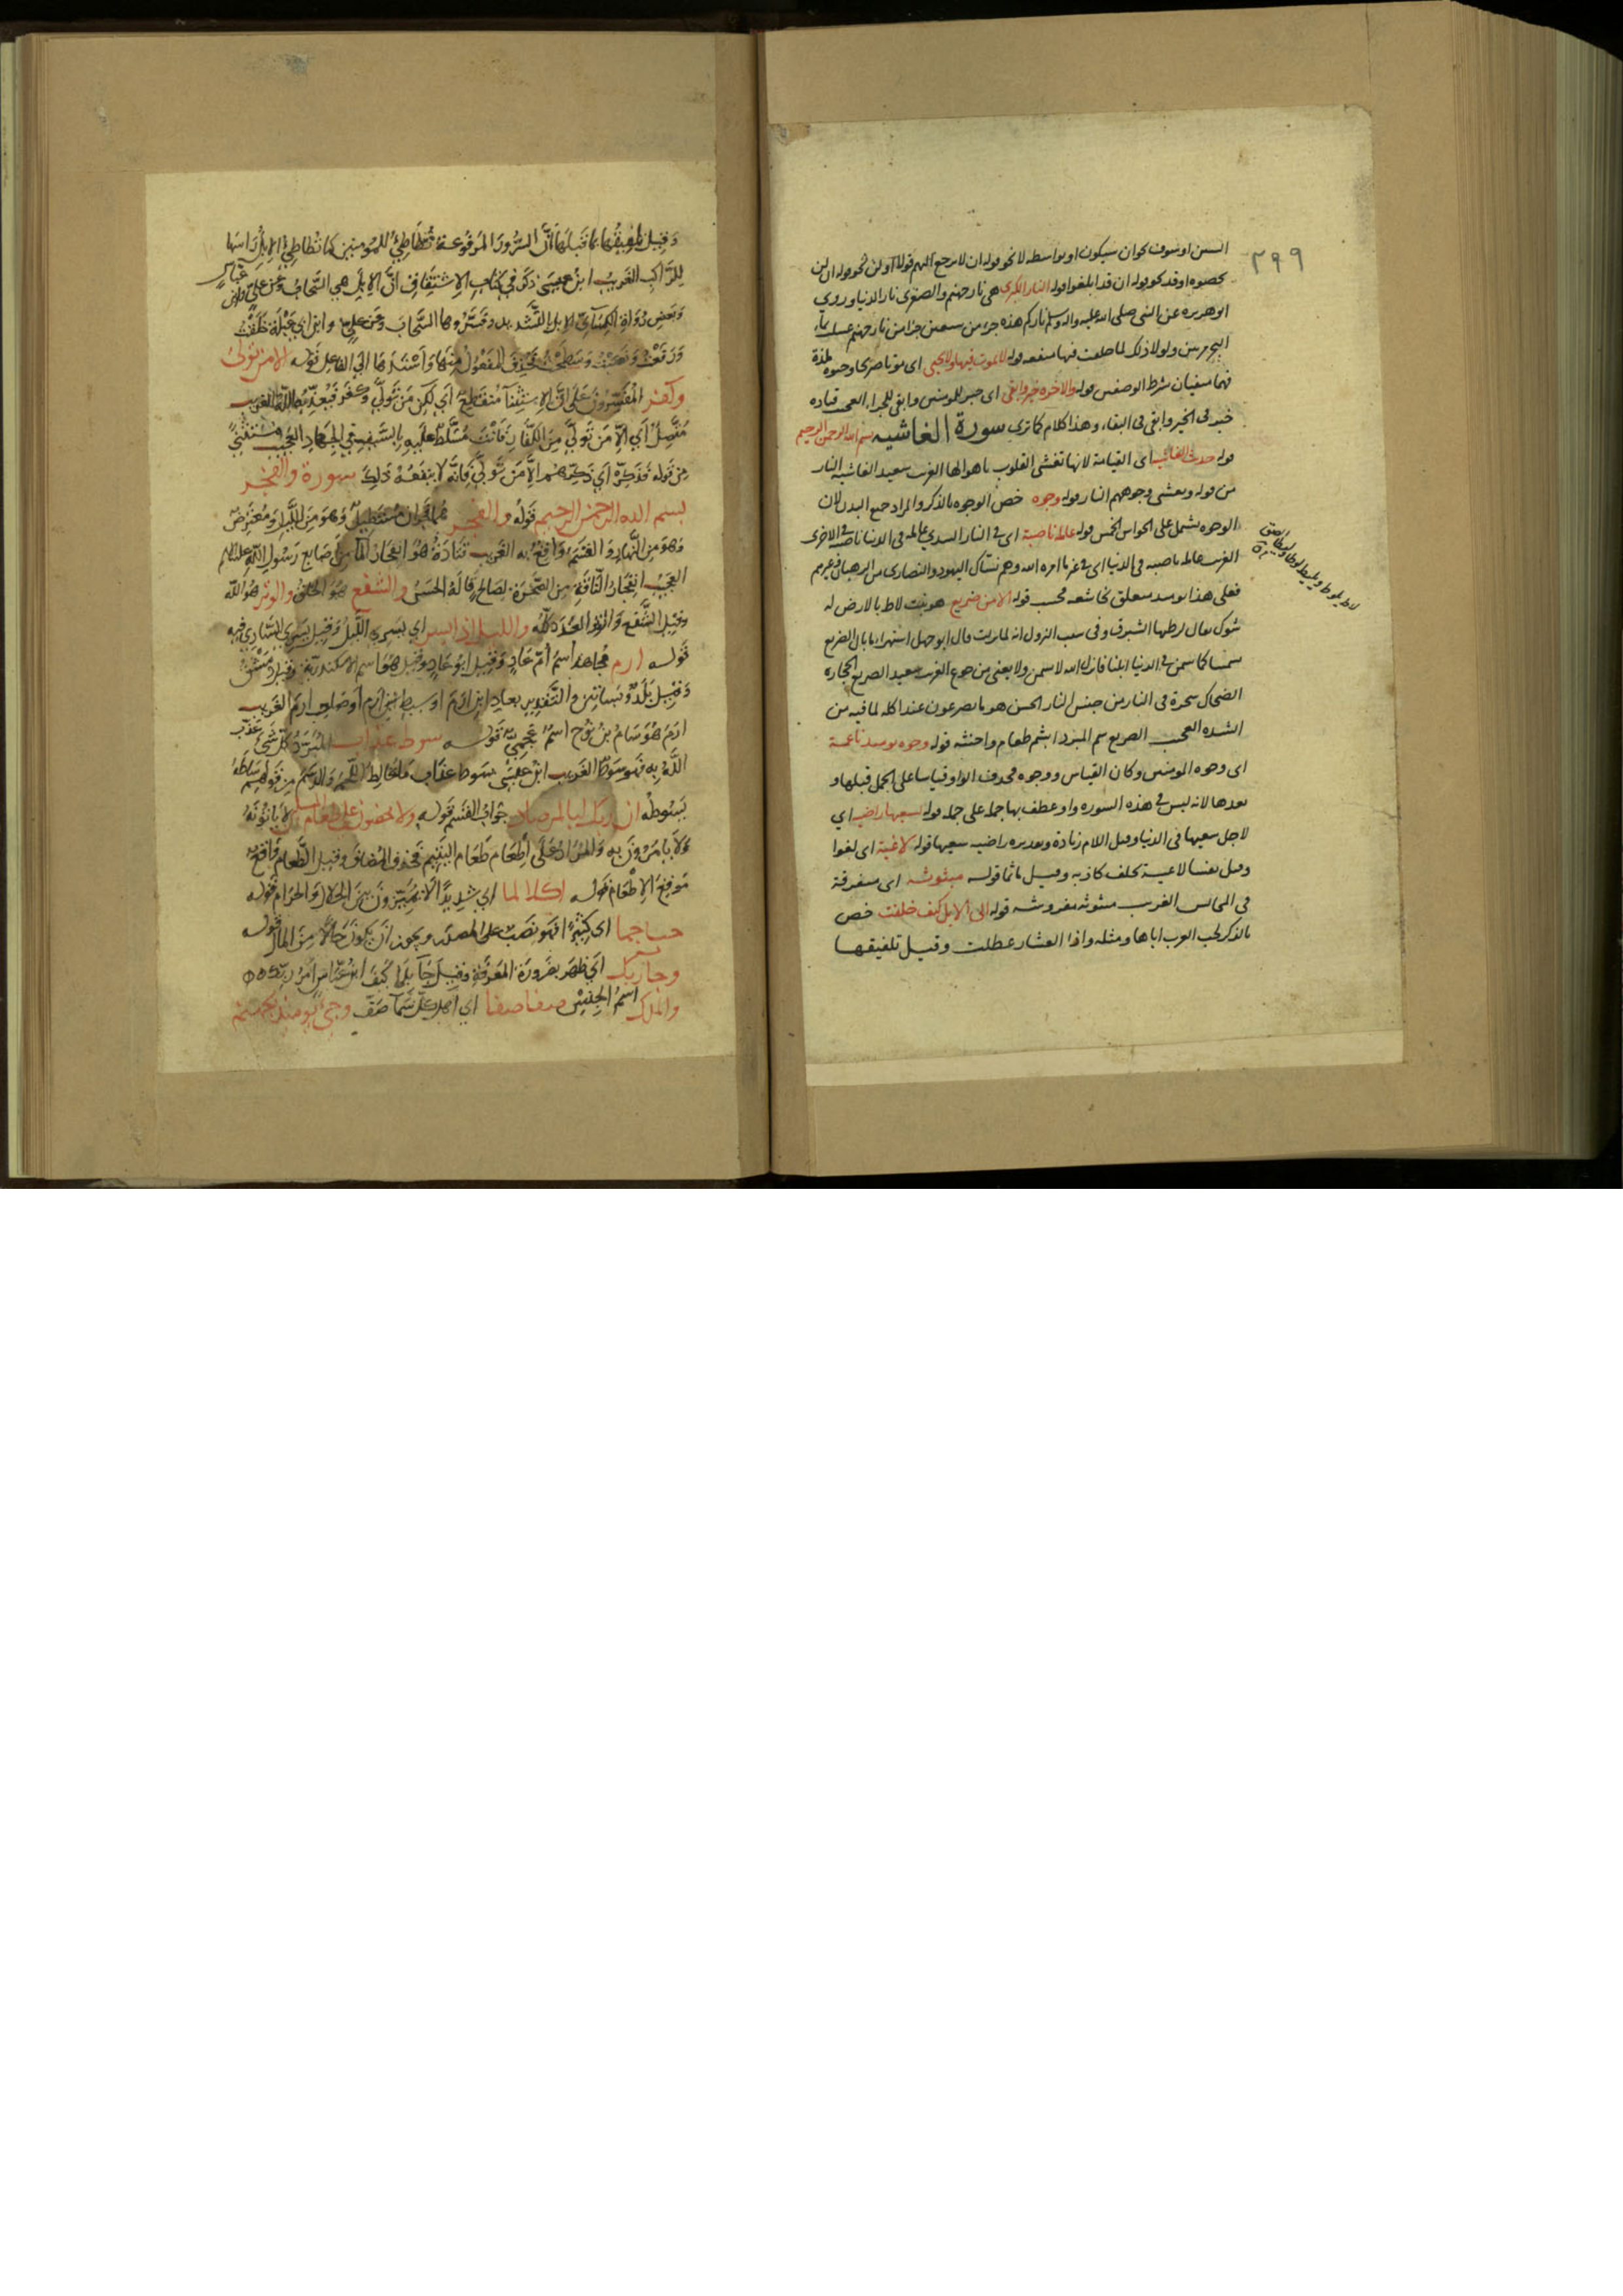 ٣٩٩
السن او سوف نحو ان سيكون او بواسطه لا نحو قوله ان لا يرجع اليهم قولا او لن نحو قوله ان لن
تحصوه او قد نحو قوله ان قد ابلغوا قوله النار الكبرى هي نار جهنم والصغرى نار الدنيا وروى
ابو هريره عن النبي صلى الله عليه واله وسلم ناركم هذه جزء من سبعين جزا من نار جهنم غسلت بماء
البحر مرتين ولولا ذلك لما جعلت فيها منفعه قوله لا يموت فيها ولا يحيى اى موتا صريحا وحيوه لذة
قوله والاخره خير وابقى اى خير للمومنين وابقى للجزاء العجيب قتاده
خير فى الخير وابقى فى البقاء وهذا كلام كما ترى سورة الغاشيه بسم الله الرحمن الرحيم
قوله حديث الغاشيه اى القيامة لانها تغشى القلوب باهوالها الغريب سعيد الغاشيه النار
من قوله وتغشى وجوههم النار قوله وجوه خص الوجوه بالذكر والمراد جميع البدن لان
الوجوه تشمل على الحواس الخمس قوله عاملة ناصبة اى فى النار السدي عاملة فى الدنيا ناصبة فى الاخرى
الغريب عاملة ناصبه فى الدنيا اى فى غير ما امره الله وهم نساك اليهود والنصارى من الرهبان وغيرهم
فعلى هذا يومئذ متعلق بخاشعه فحسب قوله الا من ضريع هو نبت لاط بالارض له
شوك يقال لرطبها الشبرق وفى سبب النزول انه لما نزلت قال ابو جهل استهزاء ما بال الضريع
سمننا كما سمن فى الدنيا ابلنا فانزل الله لا يسمن ولا يغنى من جوع الغريب سعيد الضريع الحجارة
الضحاك شجرة فى النار من جنس النار الحسن هو ما يضرعون عند اكله لما فيه من
الشده العجيب الضريع سم المبرد ابشع طعام واخبثه قوله وجوه يومئذ ناعمة
اى وجوه المومنين وكان القياس ووجوه فحذف الواو قياسا على الجمل قبلها و
بعدها لانه ليس فى هذه السوره واو عطف بها جملة على جملة قوله لسعيها راضيه اي
لاجل سعيها فى الدنيا وقيل اللام زيادة وتقديره راضيه سعيها قوله لاغية اى لغوا
وقيل نفسا لاغية تحلف كاذبه وقيل ماثما قوله مبثوثه اى متفرقة
فى المجالس الغريب مبثوثه مفروشه قوله الى الابل كيف خلقت خص
بالذكر لحب العرب اياها ومثله واذا العشار عطلت وقيل تلفيقها
وقيل تلفيقها بما قبلها ان السرر المرفوعة تتطاطئ للمومنين كما تطاطئ الابل راسها
للراكب الغريب ابن عيسى ذكر في كتاب الاشتقاق ان الابل هي السحاب وعن علي وابن عباس
وبعض رواة الكسائي الابل بالتشديد وفسروها السحاب وعن علي وابن ابي عبلة خلقت
ورفعت ونصبت وسطحت فحذف المفعول منها واسندها الى الفاعل قوله الا من تولى
وكفر المفسرون على ان الاستثنآ منقطع اي لكن من تولى وكفر فيعذبه الله الغريب
متصل اي الا من تولى من الكفار فانت مسلط عليه بالسيف في الجهاد العجيب مستثنى
من قوله فذكر اي ذكرهم الا من تولى فانه لا ينفعه ذلك سورة والفجر
بسم الله الرحمن الرحيم قوله والفجر هما فجران مستطيل وهو من الليل ومعترض
وهو من النهار والقسم واقع به الغريب قتادة هو انفجار المآ من اصابع رسول الله عليه السلم
العجيب انفجار الناقة من الصخرة لصالح قاله الحسن والشفع هو الخلق والوتر هو الله
وقيل الشفع والوتر العدد كله والليل اذا يسر اي يسري الليل وقيل يسري الساري فيه
قوله ارم مجاهد اسم ام عاد وقيل ابو عاد وقيل هو اسم الاسكندرية وقيل دمشق
وقيل بلد وبساتين والتقدير بعاد ابن ارم او سبط بني ارم او صاحب ارم الغريب
ارم هو سام بن نوح اسم عجمي قوله سوط عذاب المبرد كل شي عذب
الله به فهو سوط الغريب ابن عيسى سوط عذاب ما خالط اللحم والدم من قولهم ساطه
يسوطه ان ربك لبالمرصاد جواب القسم قوله ولا تحضون على طعام المسكين لا ياتونه
ولا يامرون به والمراد على اطعام طعام اليتيم فحذف المضاف وقيل الطعام واقع
موقع الاطعام قوله اكلا لما اي شديدا لا تميزون بين الحلال والحرام قوله
حبا جما اى كثيرا فهو نصب على المصدر ويجوز ان يكون حالا من المال قوله
وجا ربك اي ظهر بضرورة المعرفة وقيل جآ بلا كيف ابن عباس امر ربك
والملك اسم الجنس صفا صفا اي اهل كل سمآ صف وجئ يومئذ بجهنم